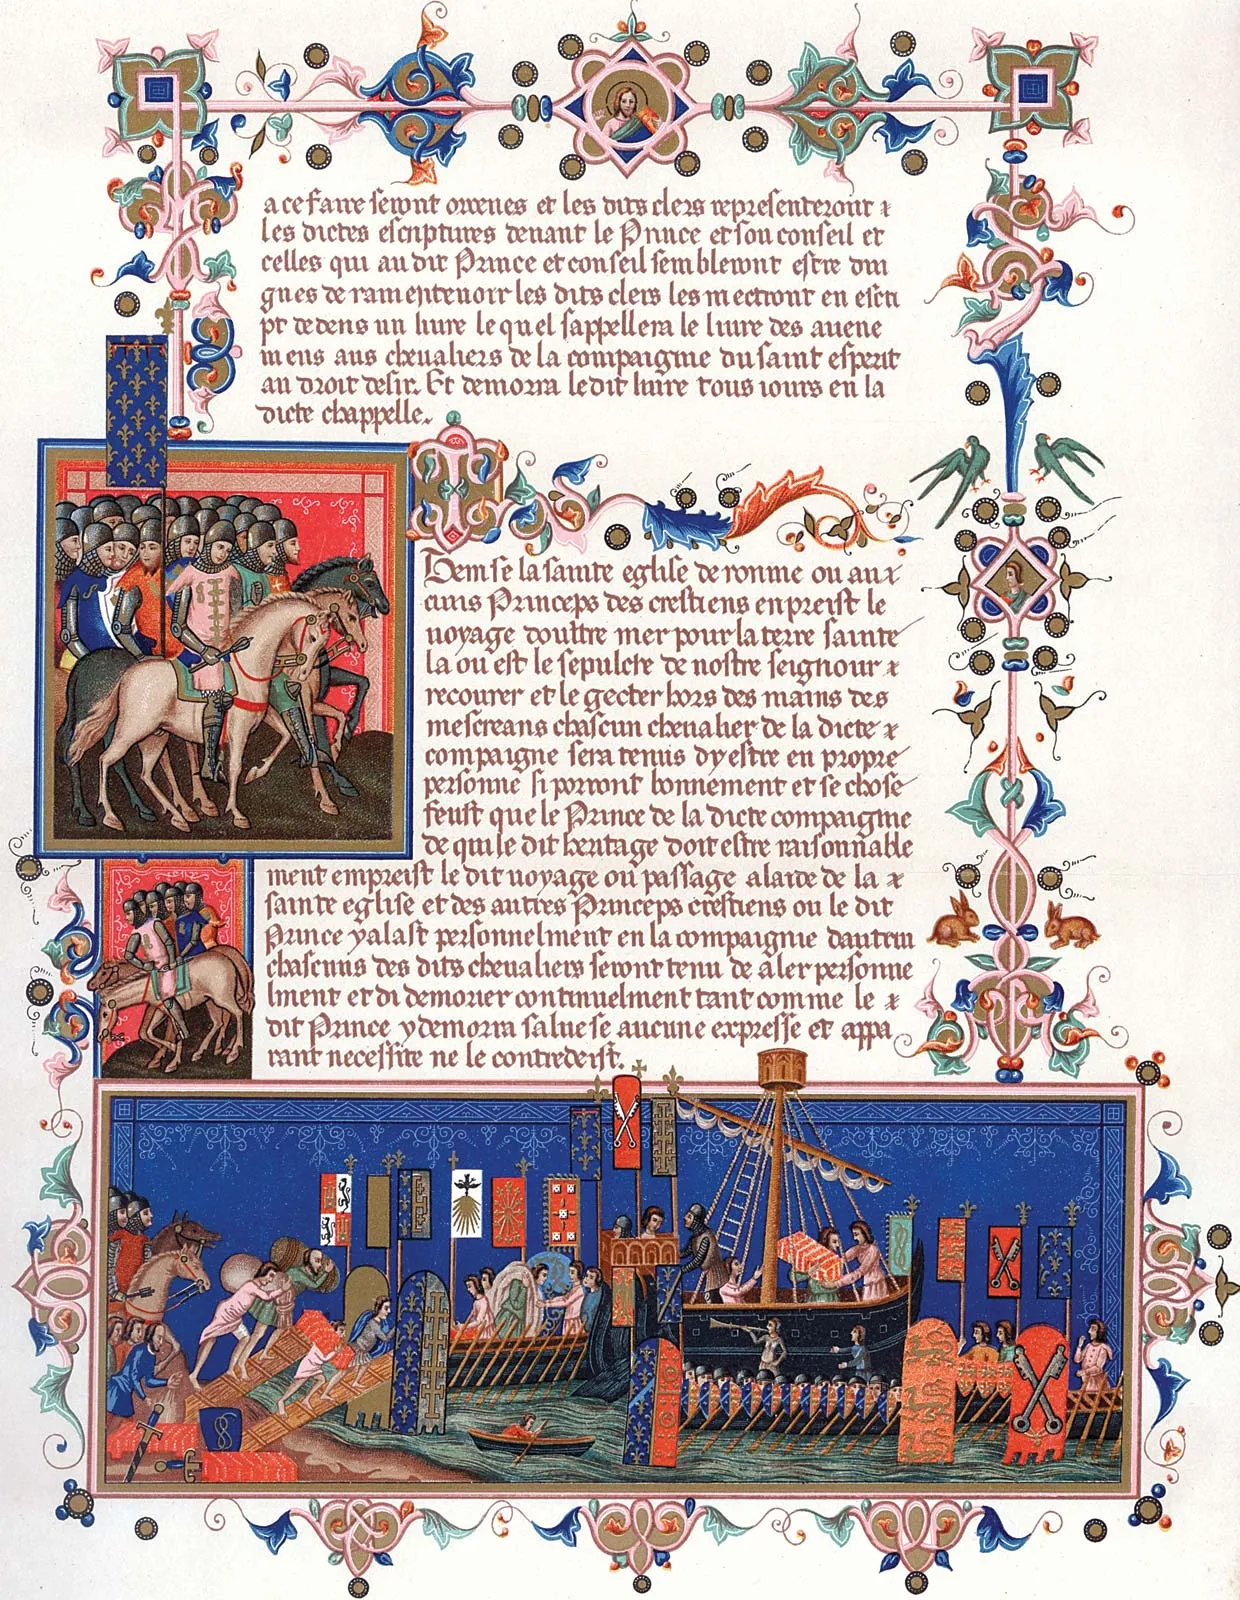 a ce faire seront ordenes et les dits clers representeront &
les dictes escriptures devant le Prince et son conseil et
celles qui au dit Prince et conseil sembleront estre di
gnes de ramentevoir les dits clers les mectront en escri
pt dedens un livre le quel sappellera le livre des avene
mens aus chevaliers de la compaignie du saint esperit
au droit desir. Et demorra le dit livre tous iours en la
dicte chappelle.
Item se la sainte eglise de romme ou au
cuns Princeps des crestiens enpreist le
voyage doultre mer pour la terre sainte
la ou est le sepulcre de nostre seignour &
recourer et le gecter hors des mains des
mescreans chascun chevalier de la dicte
compaigne sera tenus dy estre en propre
personne si porront bonnement et se chose
feust que le Prince de la dicte compaignie
de qui le dit heritage doit estre raisonnable
ment empreist le dit voyage ou passage a laide de la
sainte eglise et des autres Princeps crestiens ou le dit
Prince y alast personnelment en la compaignie dautrui
chascuns des dits chevaliers seront tenu de aler personne
lment et di demorer continuelment tant comme le
dit Prince y demorra salue se aucune expresse et appa
rant necessite ne le contredeist.